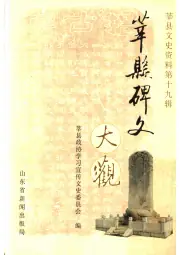 莘县文史资料第十九辑
莘縣碑文
大觀
莘县政协学习宣传文史委员会 编
山东省新闻出版局